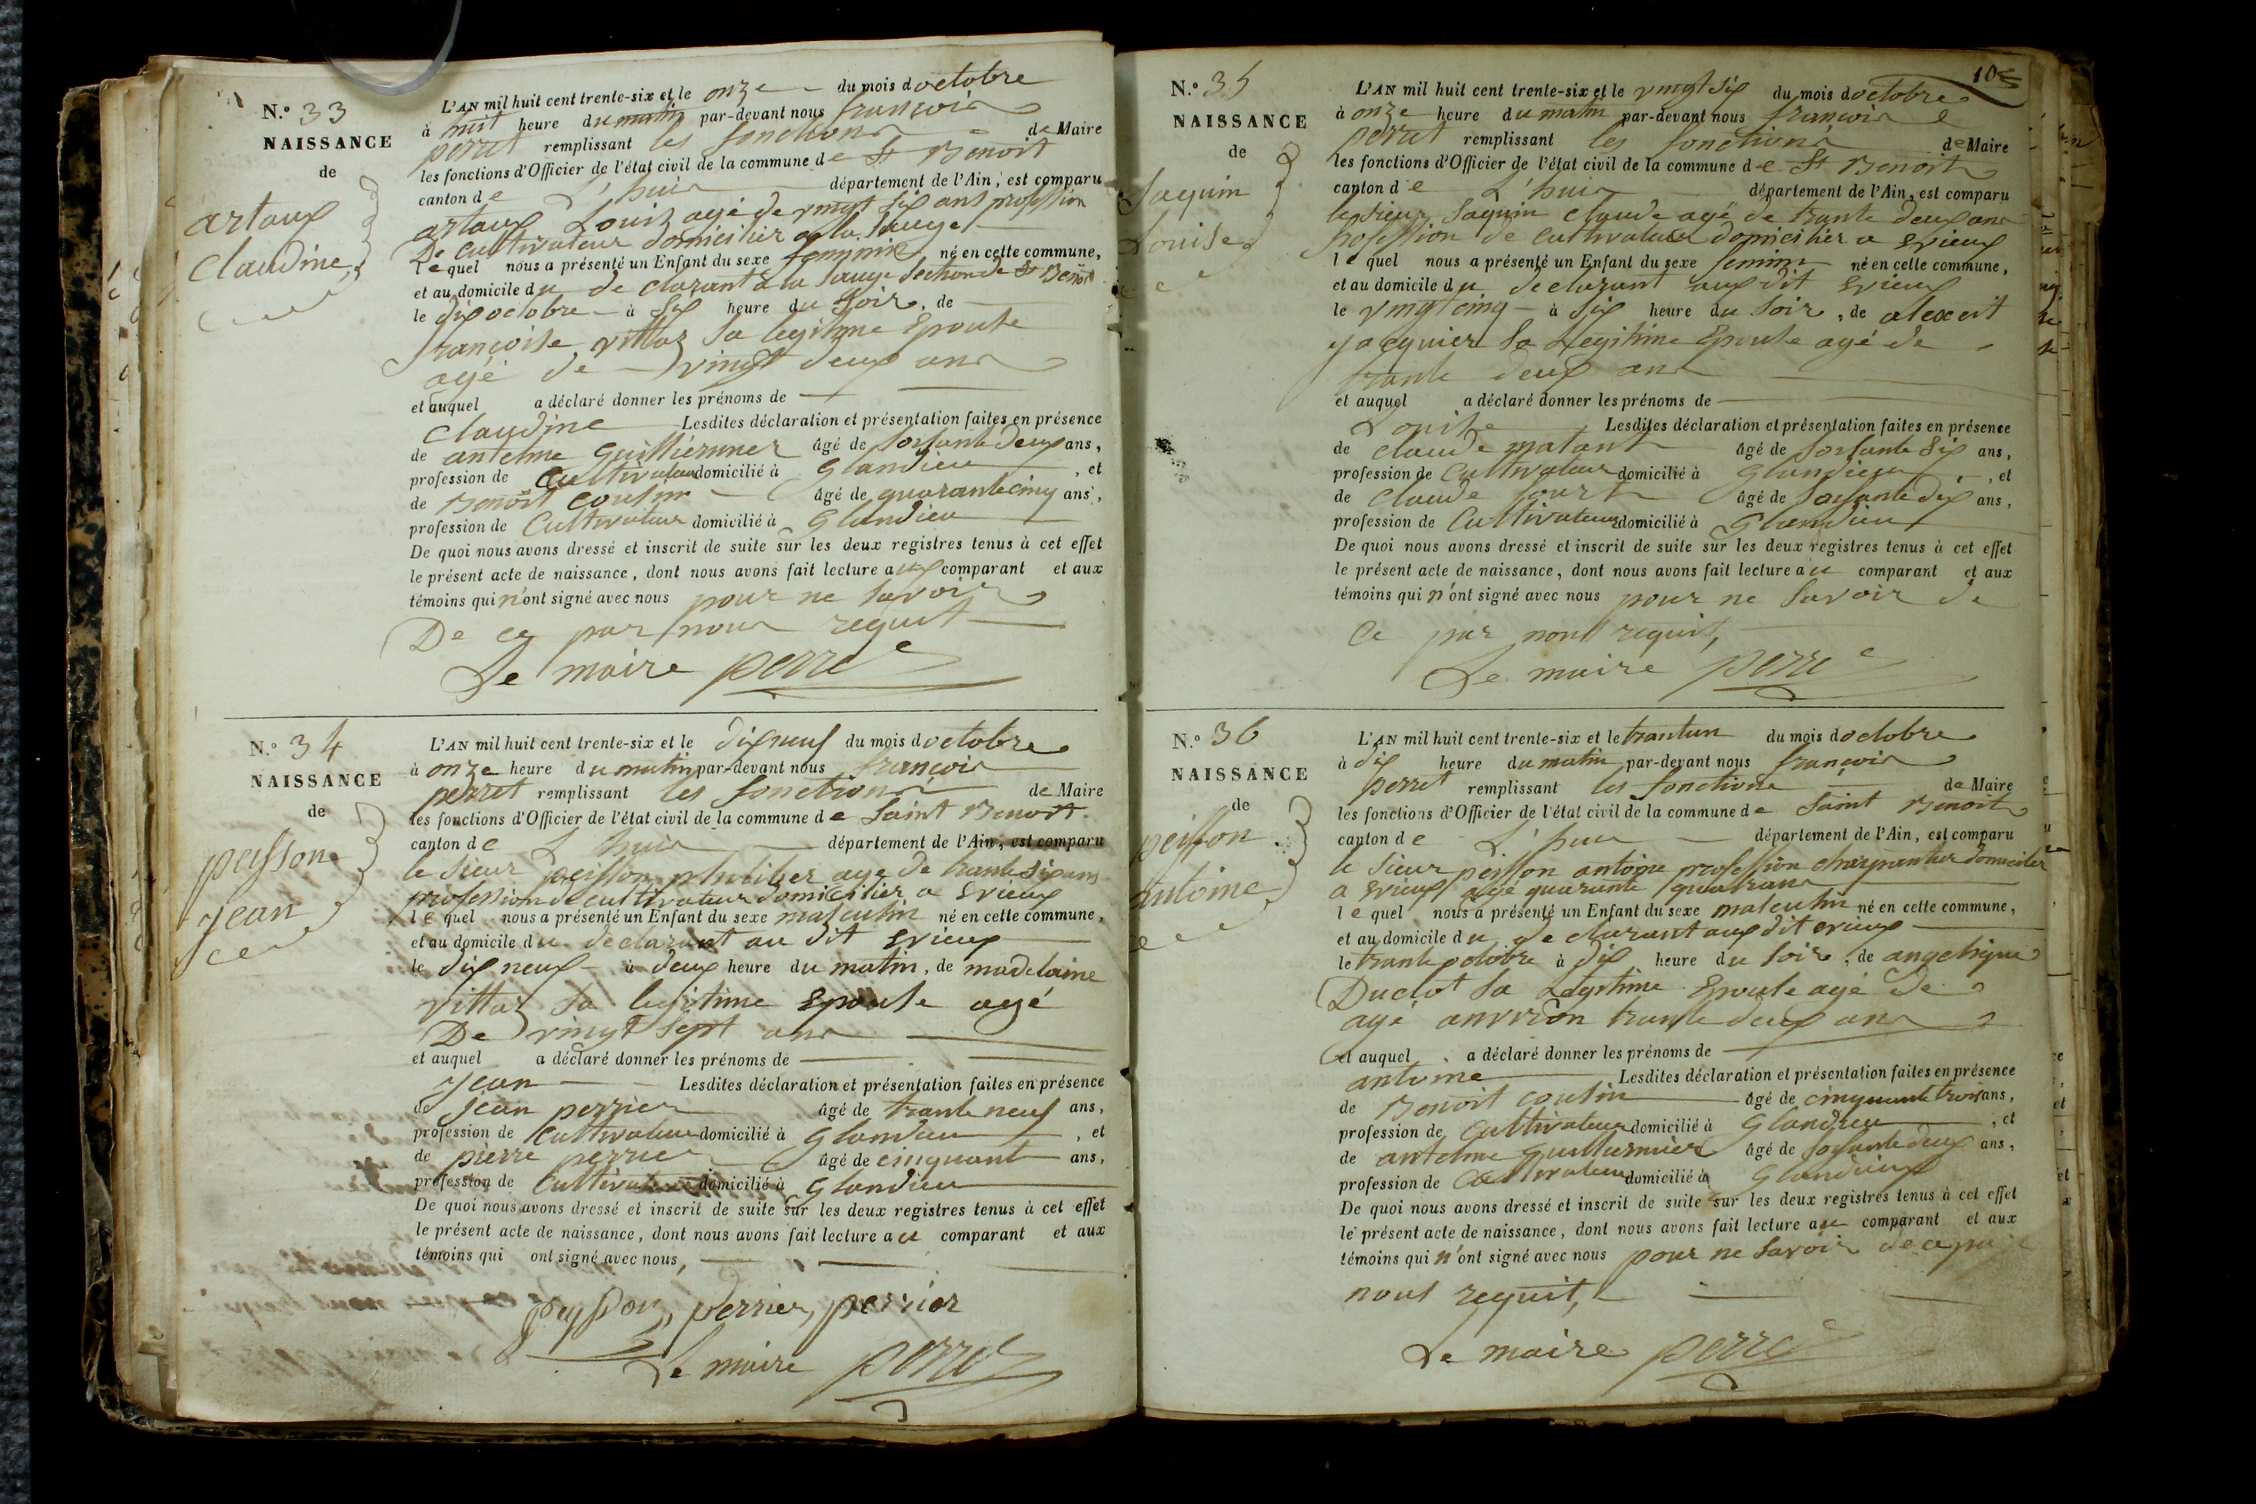 N.o 33
NAISSANCE
de
artaux
Claudine
L'AN mil huit cent trente-six et le onze du mois doctobre
à huit heure du matin par-devant nous françois
perret remplissant les fonctions de Maire
les fonctions d'Officier de l'état civil de la commune de St Benoit
canton de L'huis département de l'Ain, est comparu
artaux Louis agé de vingt six ans profession
De cultivateur domicilier a la Sauge
lequel nous a présenté un Enfant du sexe feminin né en cette commune,
et au domicile du de clarant a la Sauge section de St Benoit
le dix octobre à six heure du soir, de
françoise vittoz sa legitime Epouse
agé de vingt deux ans
et auquel a déclaré donner les prénoms de
Claudine Lesdites déclaration et présentation faites en présence
de antelme Guilliermier âgé de soisante deux ans,
profession de Cultivateur domicilié à Glandieu, et
de Benoit cousin âgé de quarante cinq ans,
profession de Cultivateur domicilié à Glandieu
De quoi nous avons dressé et inscrit de suite sur les deux registres tenus à cet effet
le présent acte de naissance, dont nous avons fait lecture aux comparant et aux
témoins qui n'ont signé avec nous pour ne savoir
De ce par nous requit
Le maire perret
N.o 34
NAISSANCE
de
peisson
jean
L'AN mil huit cent trente-six et le dix neuf du mois doctobre
à onze heure du matin par-devant nous françois
perret remplissant les fonctions de Maire
les fonctions d'Officier de l'état civil de la commune de Saint Benoit
canton de L'huis département de l'Ain, est comparu
le sieur peisson philiber agé de trante six ans
profession de cultivateur domicilier a Evieux
lequel nous a présenté un Enfant du sexe masculin né en cette commune,
et au domicile du declarant au dit Evieux
le dix neuf à deux heure du matin, de madelaine
vittoz sa legitime Epouse agé
De vingt sept ans
et auquel a déclaré donner les prénoms de
jean Lesdites déclaration et présentation faites en présence
de jean perrier âgé de trante neuf ans,
profession de Cultivateur domicilié à Glandieu, et
de pierre perrier âgé de cinquant ans,
profession de Cultivateur domicilié à Glandieu
De quoi nous avons dressé et inscrit de suite sur les deux registres tenus à cet effet
le présent acte de naissance, dont nous avons fait lecture au comparant et aux
témoins qui ont signé avec nous,
peysson, perrier, perrier
Le maire perret
N.o 35
NAISSANCE
de
Jaquin
Louise
10
L'AN mil huit cent trente-six et le vingt six du mois doctobre
à onze heure du matin par-devant nous françois
perret remplissant les fonctions de Maire
les fonctions d'Officier de l'état civil de la commune de St Benoit
canton de L'huis département de l'Ain, est comparu
le sieur Jaquin claude agé de trante deux ans
profession de cultivateur domicilier a Evieux
lequel nous a présenté un Enfant du sexe feminin né en cette commune,
et au domicile du declarant aux dit Evieux
le vingt cinq à six heure du soir, de
jacquier sa Legitime Epouse agé de
trante deux ans
et auquel a déclaré donner les prénoms de
Louise Lesdites déclaration et présentation faites en présence
de claude âgé de soisante six ans,
profession de Cultivateur domicilié à Glandieu, et
de claude âgé de soisante dix ans,
profession de Cultivateur domicilié à Glandieu
De quoi nous avons dressé et inscrit de suite sur les deux registres tenus à cet effet
le présent acte de naissance, dont nous avons fait lecture au comparant et aux
témoins qui n'ont signé avec nous pour ne savoir de
ce par nous requit,
Le maire perret
N.o 36
NAISSANCE
de
peisson
antoine
L'AN mil huit cent trente-six et le trantun du mois doctobre
à dix heure du matin par-devant nous françois
perret remplissant les fonctions de Maire
les fonctions d'Officier de l'état civil de la commune de Saint Benoit
canton de L'huis département de l'Ain, est comparu
le sieur peisson antoine profession charpantier domicilier
a Evieux agé quarante quatrans
lequel nous a présenté un Enfant du sexe masculin né en cette commune,
et au domicile du de clarant aux dit evieux
le trante octobre à dix heure du soir, de angelique
Duclot sa Legitime Epouse agé de
agé anviron trante deux ans
et auquel a déclaré donner les prénoms de
antoine Lesdites déclaration et présentation faites en présence
de Benoit cousin âgé de cinquante trois ans,
profession de Cultivateur domicilié à Glandieu, et
de antelme Guilliermier âgé de soisante deux ans,
profession de Cultivateur domicilié à Glandieux
De quoi nous avons dressé et inscrit de suite sur les deux registres tenus à cet effet
le présent acte de naissance, dont nous avons fait lecture au comparant et aux
témoins qui n'ont signé avec nous pour ne savoir de ce par
nous requit,
Le maire perret